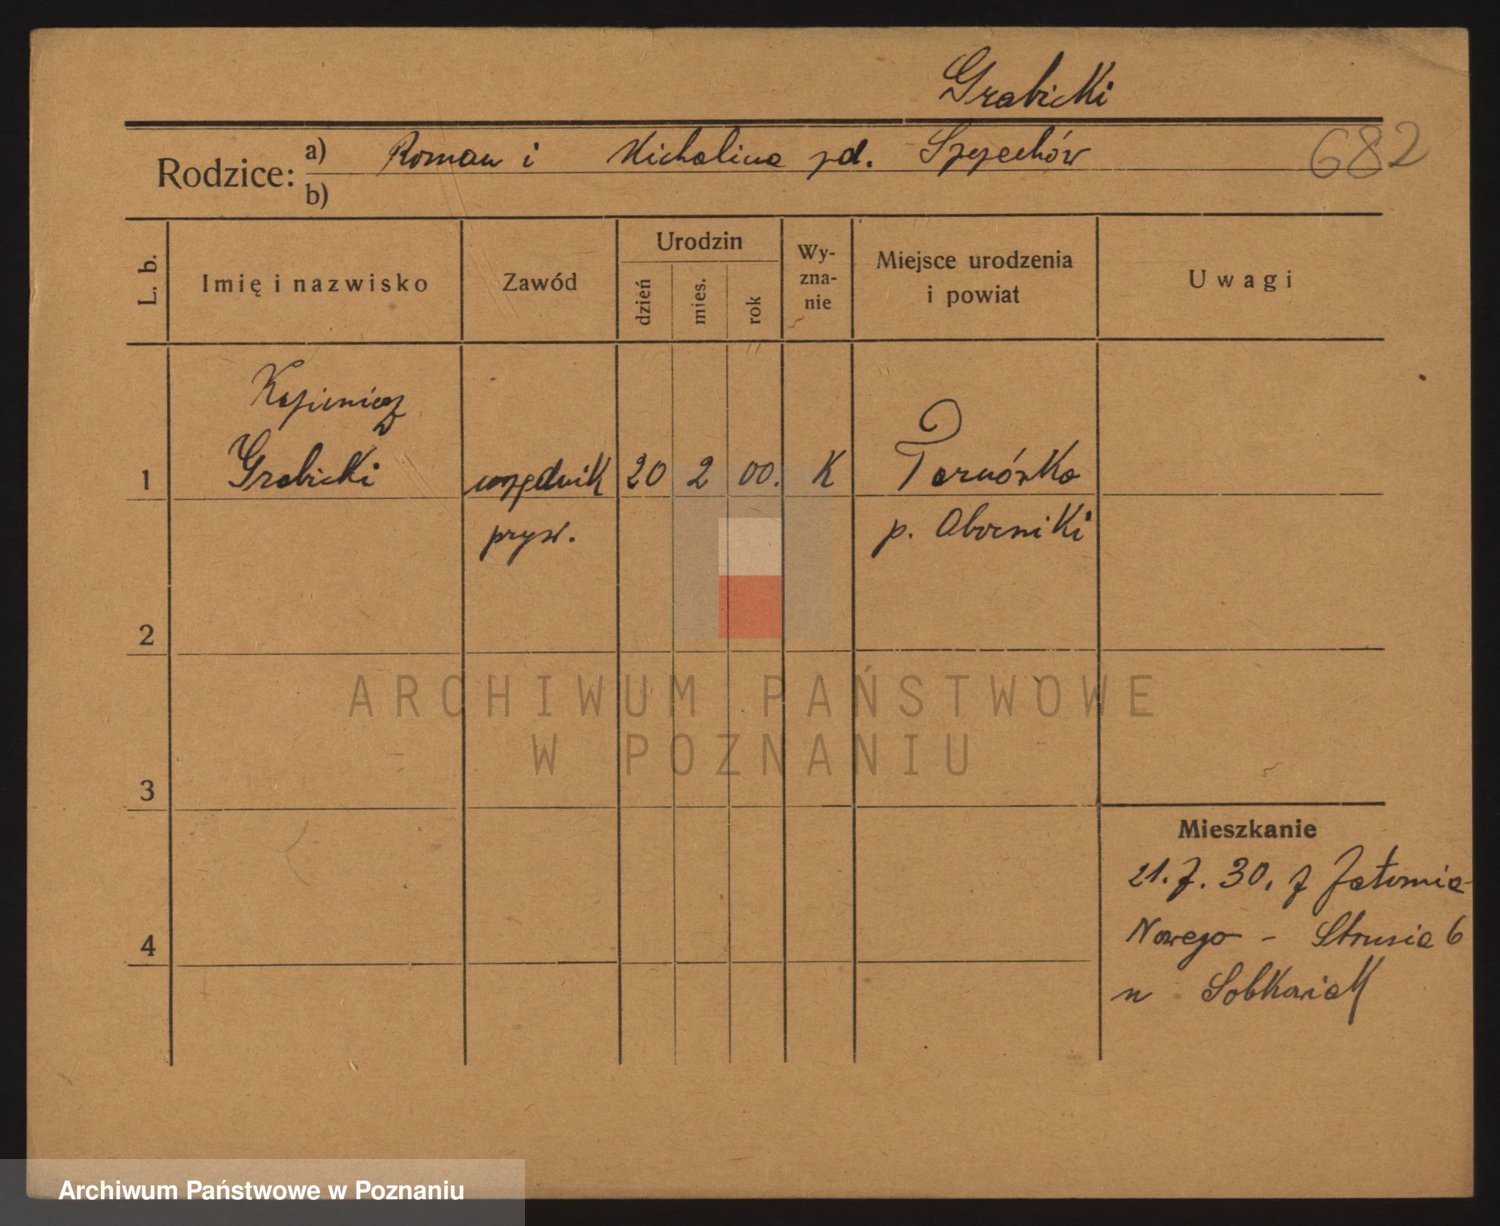 Grabicki
682
Rodzice: a) Roman i Michalina zd. Szczechów
b)
L. b.
Imię i nazwisko
Zawód
Urodzin
dzień
mies.
rok
Wy-
zna-
nie
Miejsce urodzenia
i powiat
Uwagi
Kazimierz
1 Grabicki urzędnik 20 2 00. K Tarnówko
pryw. p. Oborniki
2
3
4
Mieszkanie
21.7.30. z Jatomia
Nowego - Strusia 6
u Sobkowiak
ARCHIWUM PAŃSTWOWE
W POZNANIU
Archiwum Państwowe w Poznaniu